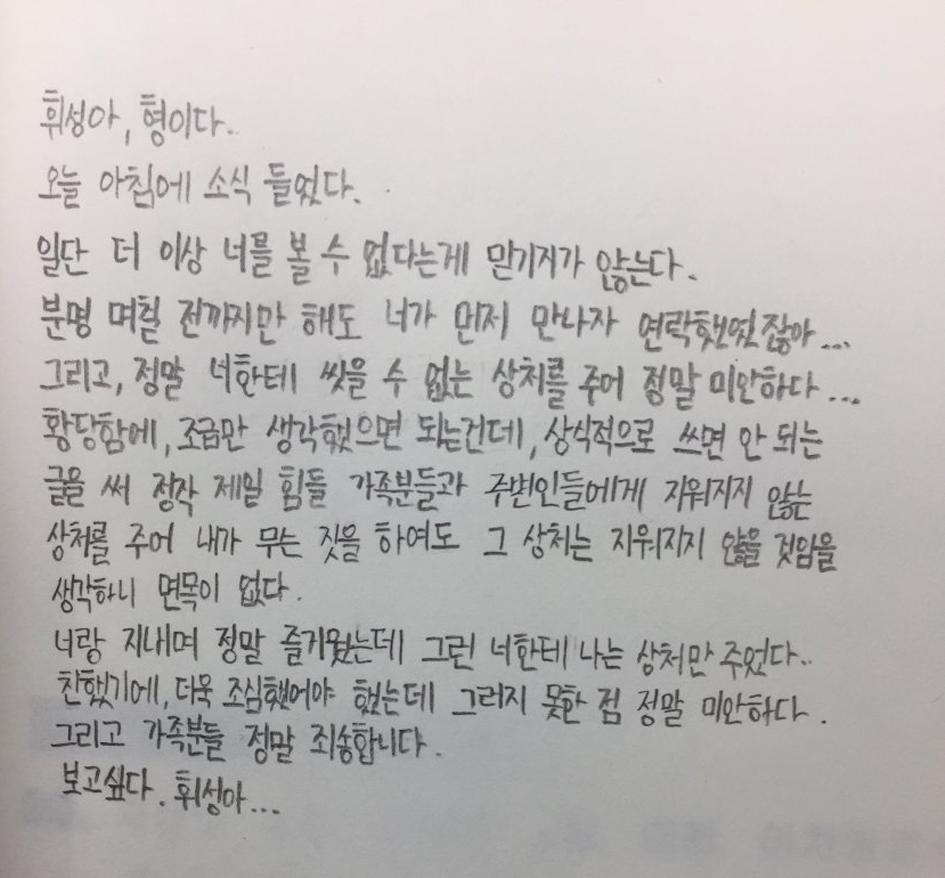 휘성아, 형이다..
오늘 아침에 소식 들었다.
일단 더 이상 너를 볼 수 없다는게 믿기지가 않는다.
분명 며칠 전까지만 해도 너가 먼저 만나자 연락했었잖아...
그리고, 정말 너한테 씻을 수 없는 상처를 주어 정말 미안하다...
황당함에, 조금만 생각했으면 되는건데, 상식적으로 쓰면 안 되는
글을 써 정작 제일 힘들 가족분들과 주변인들에게 지워지지 않는
상처를 주어 내가 무슨 짓을 하여도 그 상처는 지워지지 않을 것임을
생각하니 면목이 없다.
너랑 지내며 정말 즐거웠는데 그런 너한테 나는 상처만 주었다..
친했기에, 더욱 조심했어야 했는데 그러지 못한 점 정말 미안하다.
그리고 가족분들 정말 죄송합니다.
보고싶다. 휘성아...